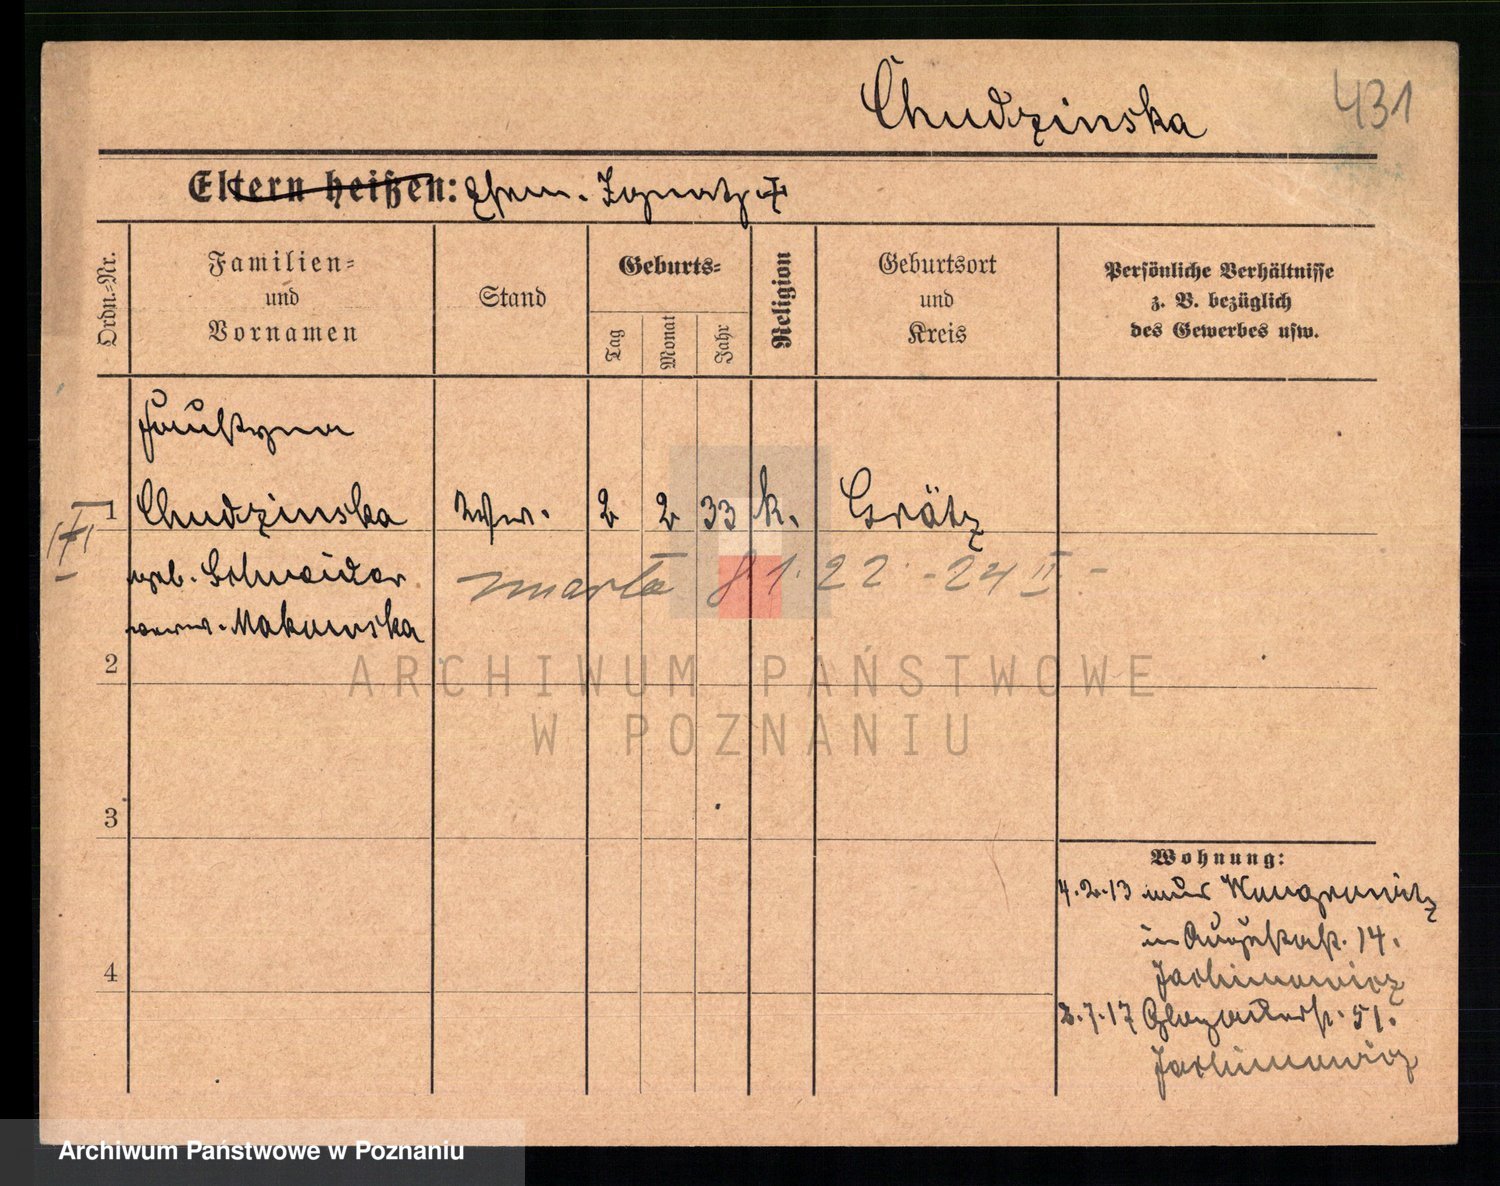 Chudzinska
431
Eltern heißen: Ehem. Ignatz +
Ordn.=Nr.
Familien=
und
Vornamen
Stand
Geburts=
Tag
Monat
Jahr
Religion
Geburtsort
und
Kreis
Persönliche Verhältnisse
z. B. bezüglich
des Gewerbes usw.
Faustyna
1 Chudzinska Ww. 2 2 33 k. Grätz
geb. Schneider
verw. Makowska
zmarła 81.22 - 24 II -
2
3
4
Wohnung:
4.2.13 aus Wongrowitz
in Augustastr. 14.
Jachimowicz
2.7.17 Glogauerstr. 51.
Jachimowicz
ARCHIWUM PAŃSTWOWE
W POZNANIU
Archiwum Państwowe w Poznaniu